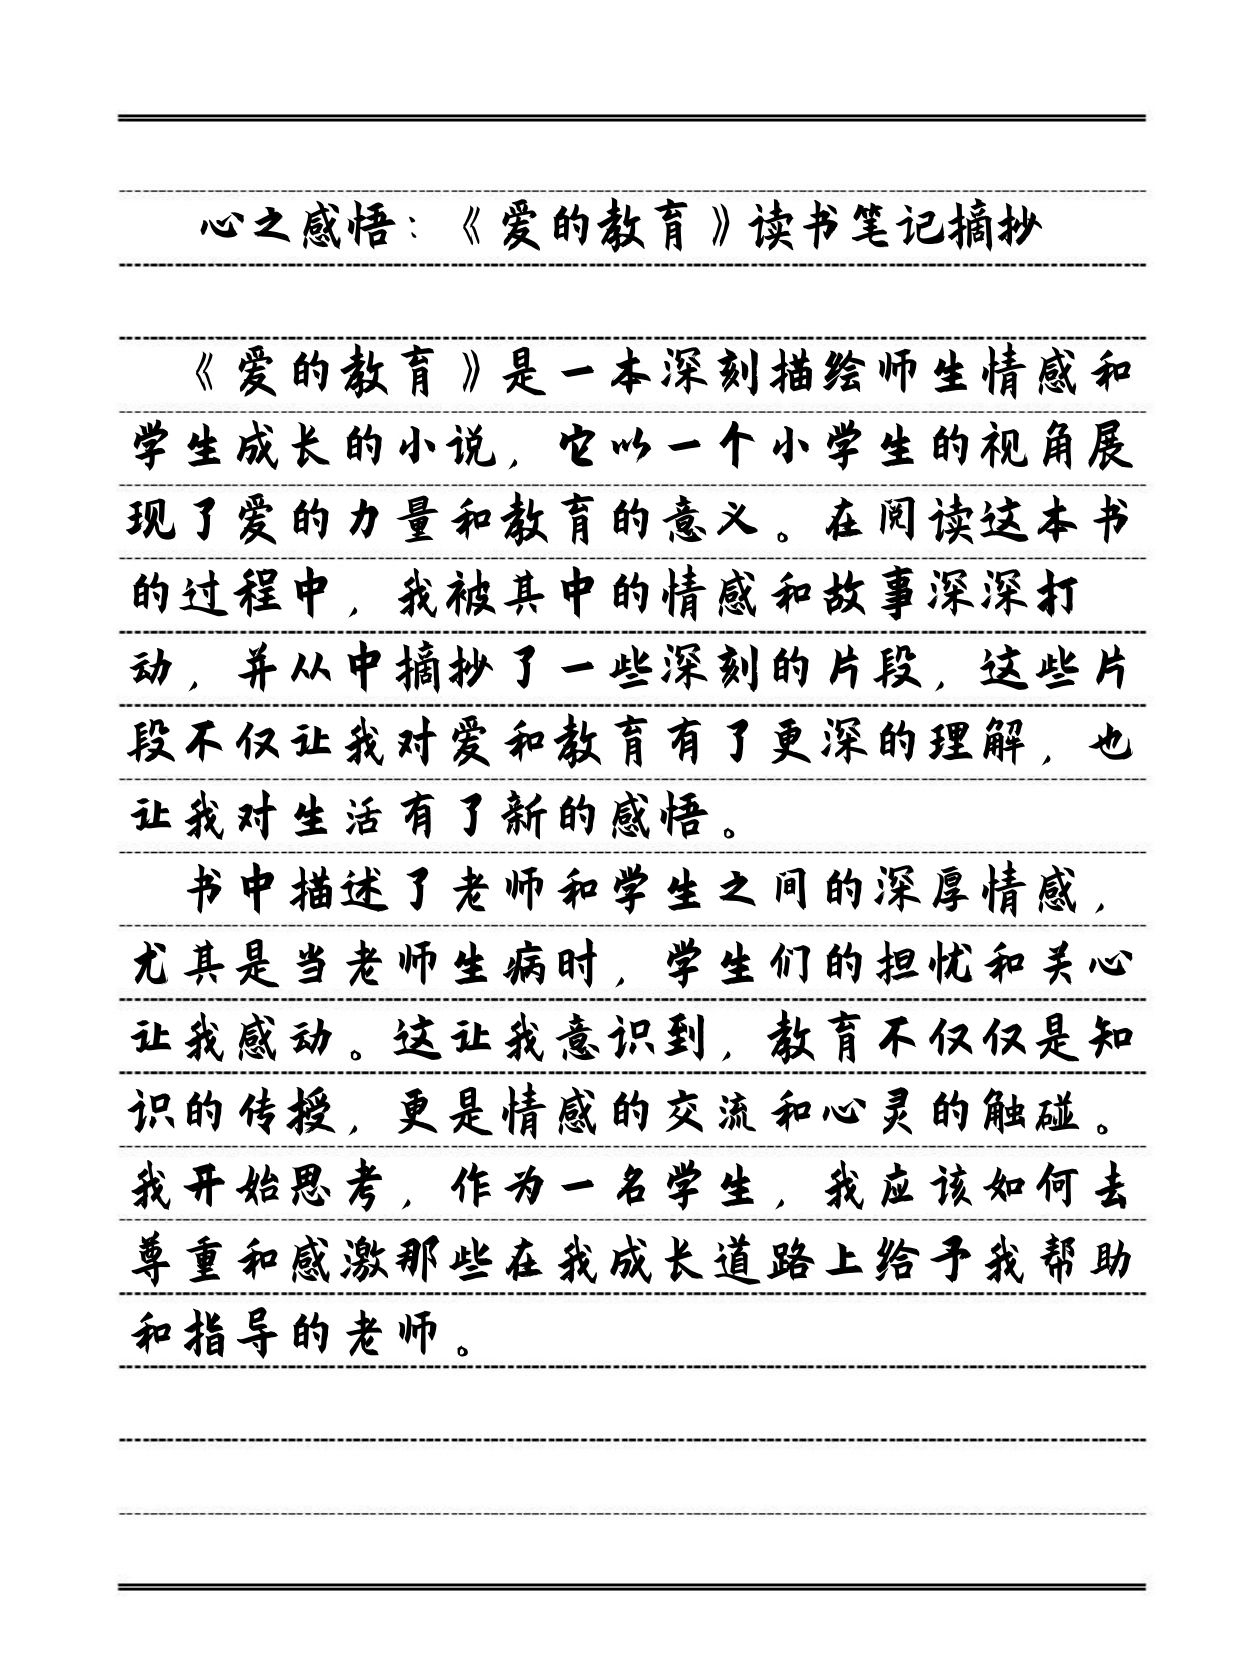 心之感悟：《爱的教育》读书笔记摘抄
《爱的教育》是一本深刻描绘师生情感和
学生成长的小说，它以一个小学生的视角展
现了爱的力量和教育的意义。在阅读这本书
的过程中，我被其中的情感和故事深深打
动，并从中摘抄了一些深刻的片段，这些片
段不仅让我对爱和教育有了更深的理解，也
让我对生活有了新的感悟。
书中描述了老师和学生之间的深厚情感，
尤其是当老师生病时，学生们的担忧和关心
让我感动。这让我意识到，教育不仅仅是知
识的传授，更是情感的交流和心灵的触碰。
我开始思考，作为一名学生，我应该如何去
尊重和感激那些在我成长道路上给予我帮助
和指导的老师。